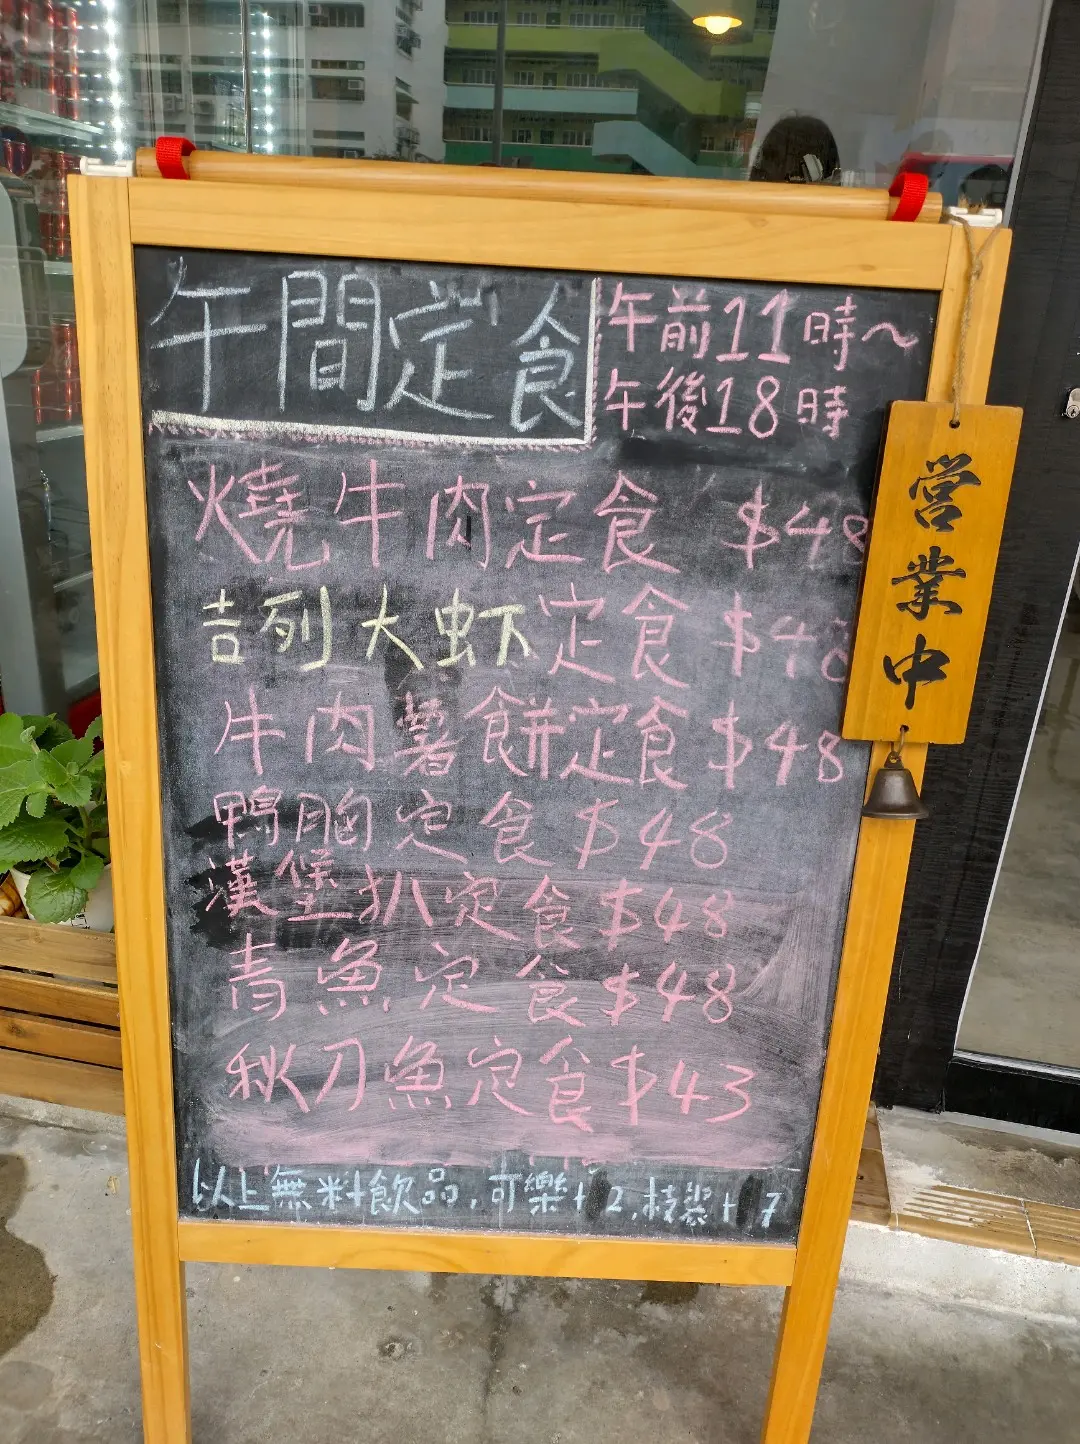 午間定食
午前11時～
午後18時
燒牛肉定食 $48
吉列大虾定食 $48
牛肉薯餅定食 $48
鴨胸定食 $48
漢堡扒定食 $48
青魚定食 $48
秋刀魚定食 $43
以上無料飲品,可樂+2,枝裝+7
営業中